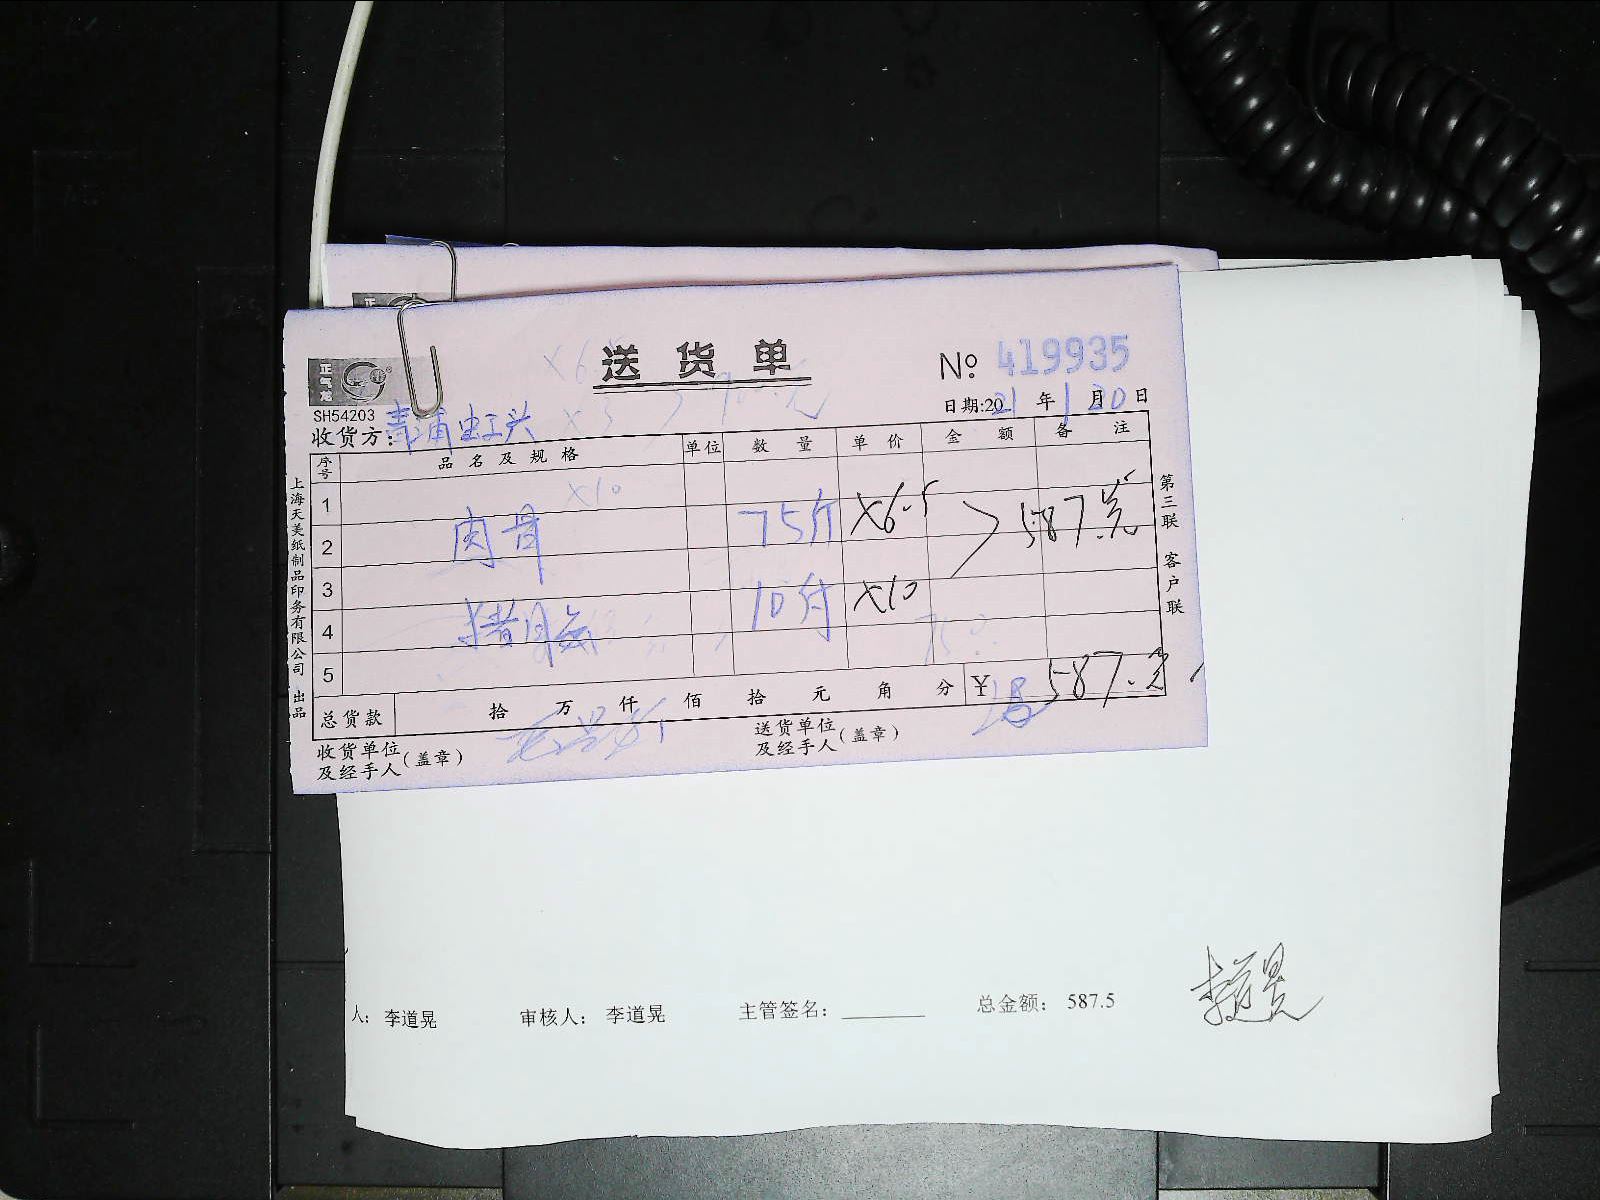 正
正气龙
送货单
№ 419935
SH54203
日期:2021年1月20日
收货方: 青浦虹兴
序号 品名及规格 单位 数量 单价 金额 备注
×10
1
2 肉骨 75斤 ×6.5 587.元
3
4 10付 ×10
5
总货款 拾 万 仟 佰 拾 元 角 分 ¥ 587.元
收货单位及经手人(盖章)
送货单位及经手人(盖章)
上海天美纸制品印务有限公司 出品
第三联 客户联
人: 李道晃 审核人: 李道晃 主管签名: 总金额: 587.5
李道晃